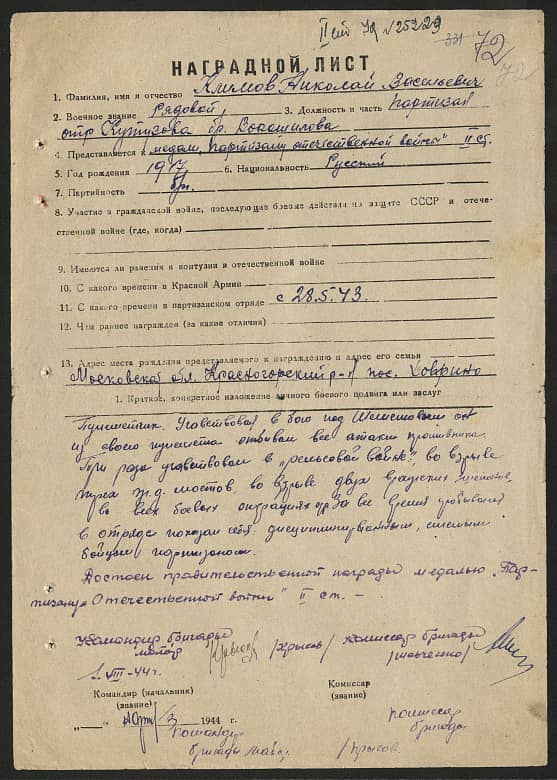 II ст
331 72
НАГРАДНОЙ ЛИСТ
1. Фамилия, имя и отчество Климов Николай Васильевич
2. Военное звание Рядовой, 3. Должность и часть партизан
отр Кутузова бр. Ворошилова
4. Представляется к медали „Партизану отечественной войны" II ст.
5. Год рождения 1917 6. Национальность Русский
7. Партийность
8. Участие в гражданской войне, последующие боевые действия по защите СССР и отече-
ственной войне (где, когда)
9. Имеются ли ранения и контузии в отечественной войне
10. С какого времени в Красной Армии
11. С какого времени в партизанском отряде с 28.5.43.
12. Чем ранее награжден (за какие отличия)
13. Адрес места рождения представляемого к награждению и адрес его семьи
Московская обл. Красногорский р-н пос. Ховрино
1. Краткое, конкретное изложение личного боевого подвига или заслуг
Пулеметчик. Участвовал в бою под он
из своего пулемета отбивал все атаки противника.
Три раза участвовал в „рельсовой войне", во взрыве
двух ж.д. мостов, во взрыве двух вражеских эшелонов,
во всех боевых операциях За все время пребывания
в отряде показал себя дисциплинированным, смелым
бойцом партизаном.
Достоин правительственной награды медалью „Пар-
тизану Отечественной войны" II ст. —
Командир бригады Комиссар бригады
майор /Крысов/
1.VIII-44г.
Командир (начальник) Комиссар
(звание) (звание)
1944 г. Комиссар
Командир бригады
бригады майор /Крысов.